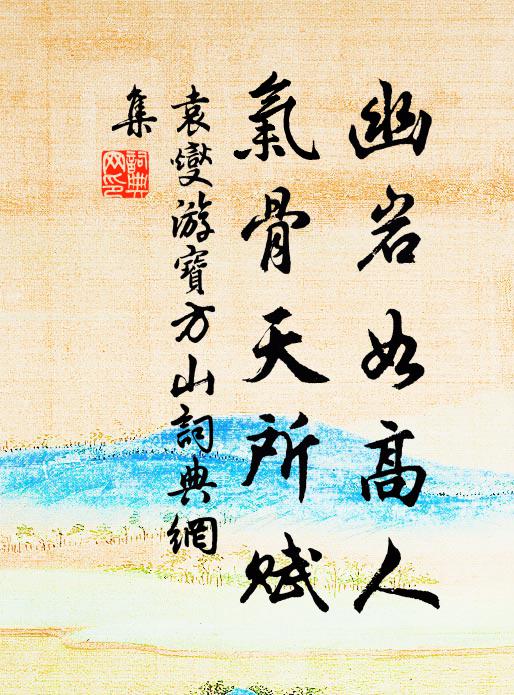 幽岩如高人
氣骨天所賦
袁燮游寶方山詞典網
集
詞典網印